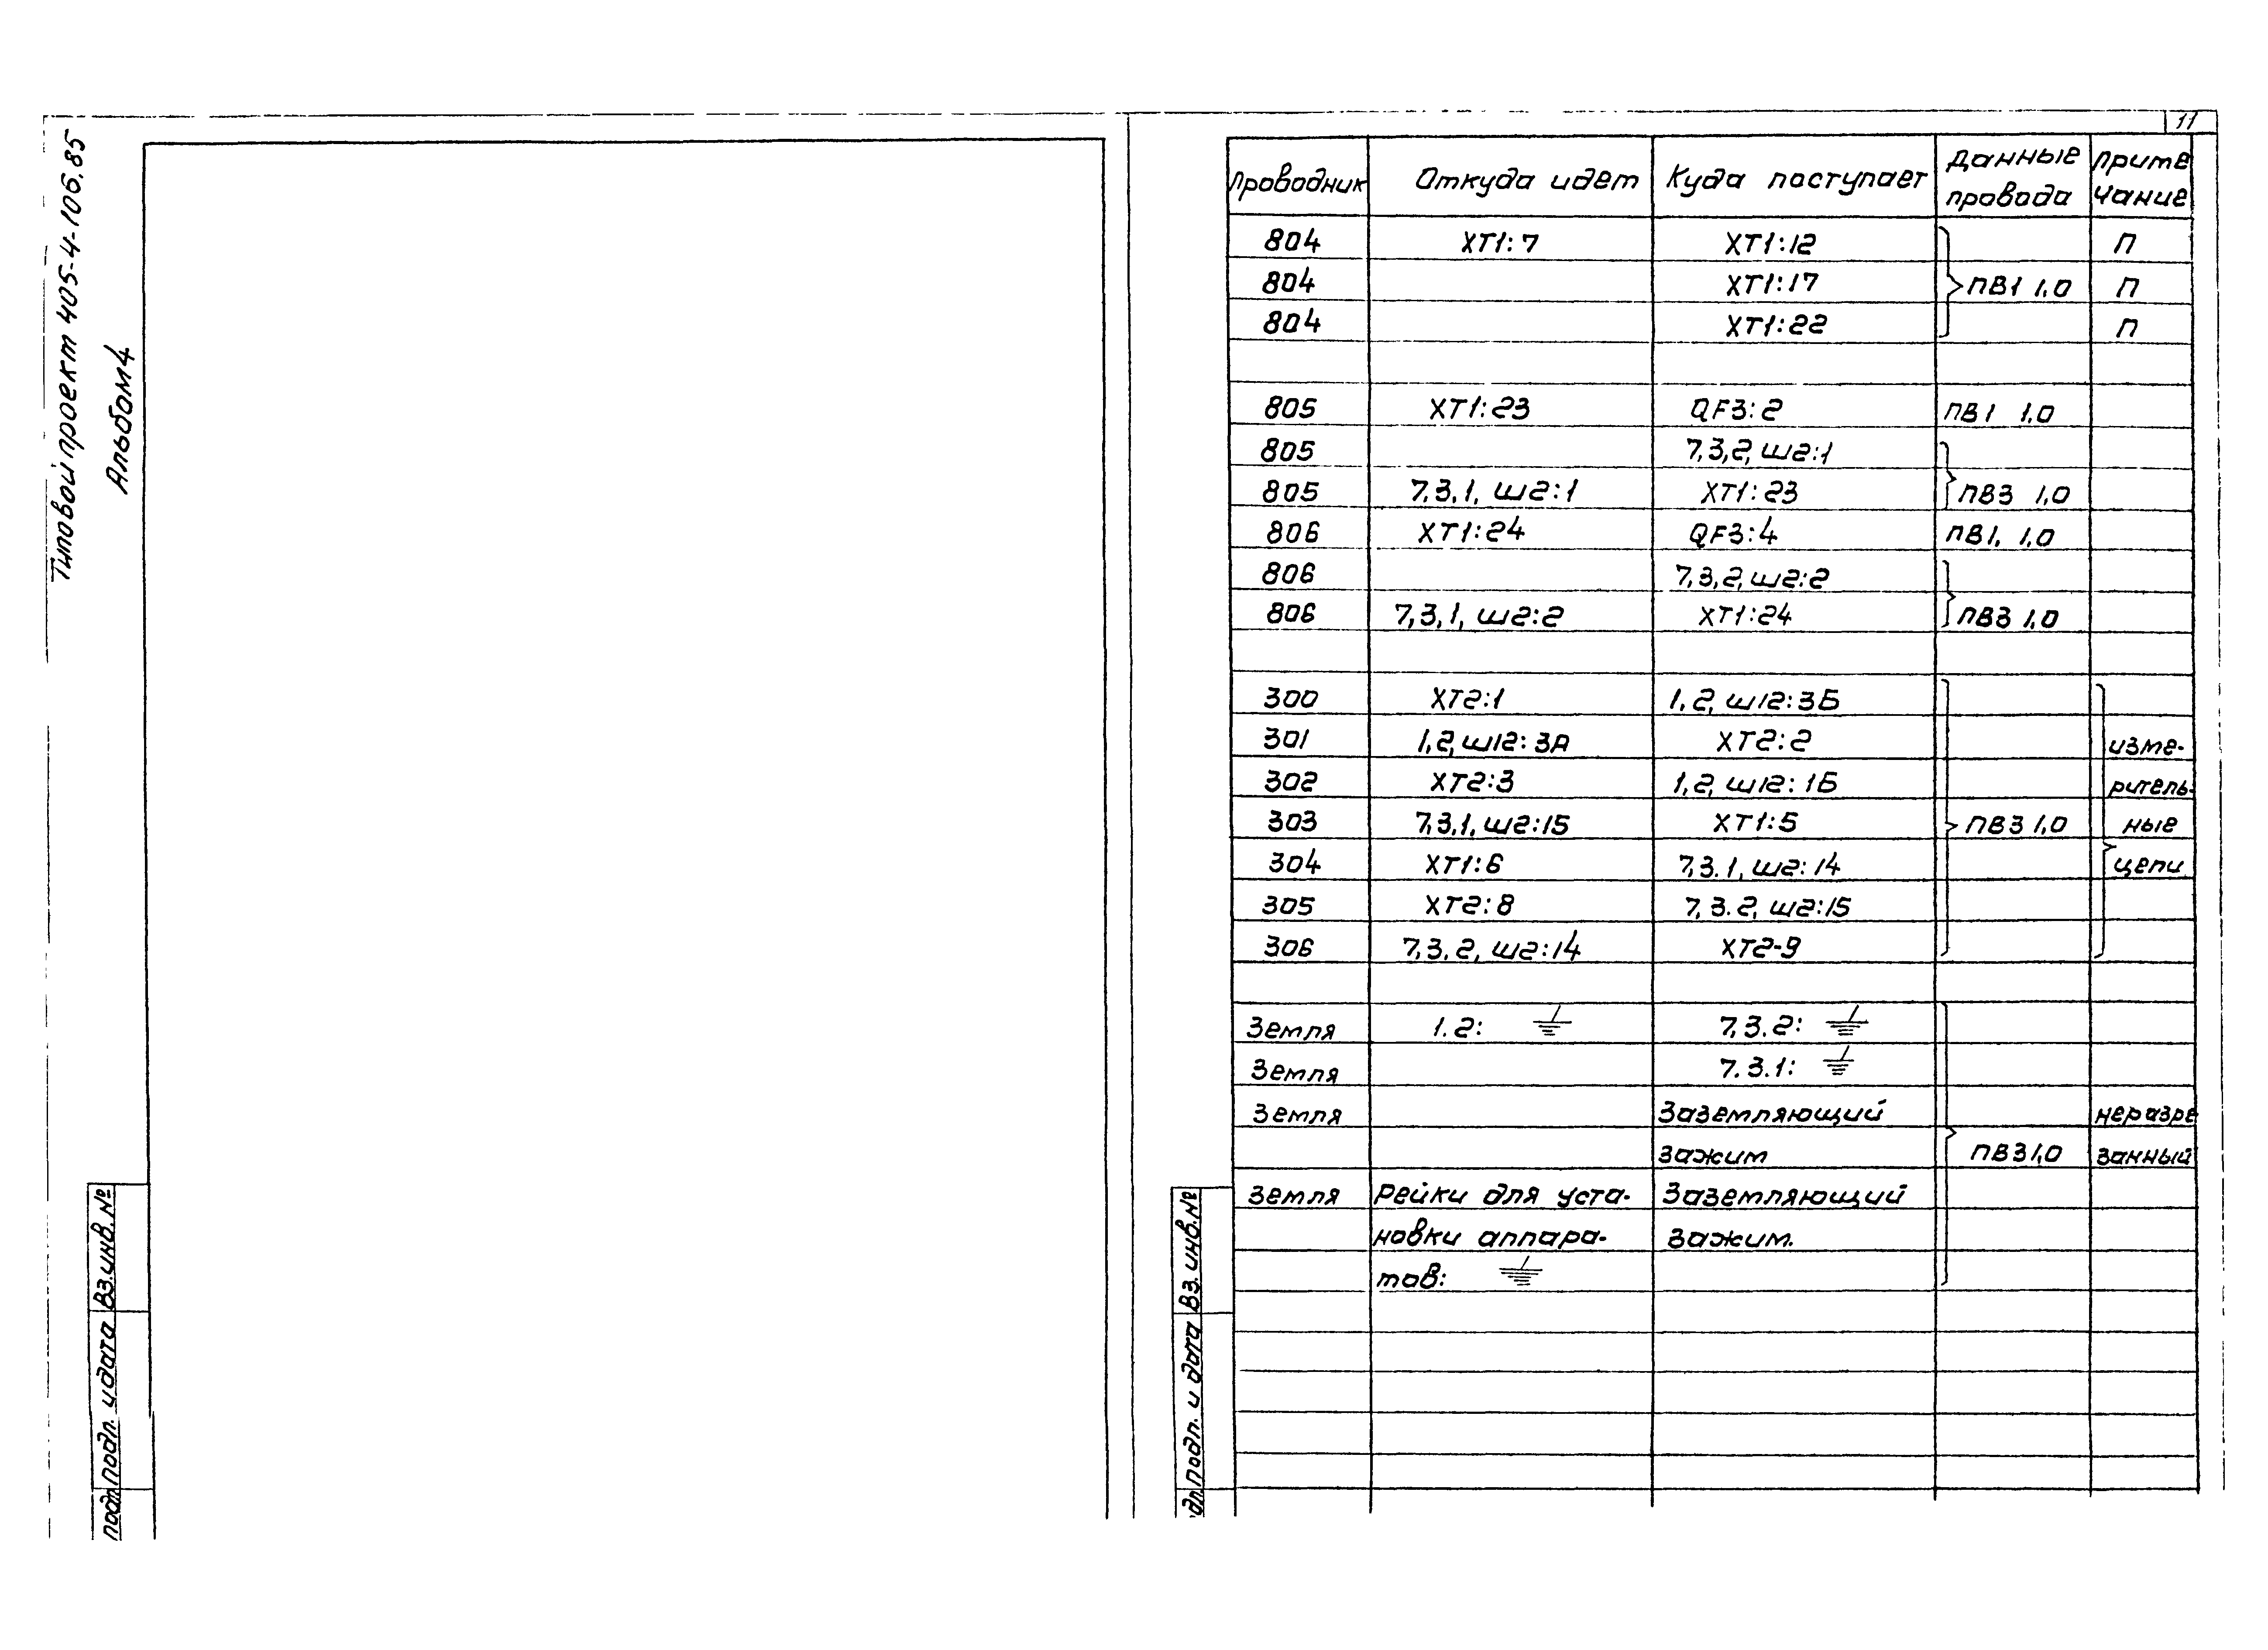 11
Типовой проект 405-4-106.85
Альбом 4
Проводник Откуда идет Куда поступает Данные провода Приме чание
804 ХТ1:7 ХТ1:12 П
804 ХТ1:17 ПВ1 1,0 П
804 ХТ1:22 П
805 ХТ1:23 QF3:2 ПВ1 1,0
805 7,3,2, Ш2:1
805 7,3,1, Ш2:1 ХТ1:23 ПВ3 1,0
806 ХТ1:24 QF3:4 ПВ1, 1,0
806 7,3,2, Ш2:2
806 7,3,1, Ш2:2 ХТ1:24 ПВ3 1,0
300 ХТ2:1 1,2, Ш12:3Б
301 1,2, Ш12:3А ХТ2:2 изме-
302 ХТ2:3 1,2, Ш12:1Б ритель-
303 7,3,1, Ш2:15 ХТ1:5 ПВ3 1,0 ные
304 ХТ1:6 7,3.1, Ш2:14 цепи
305 ХТ2:8 7,3.2, Ш2:15
306 7,3,2, Ш2:14 ХТ2-9
Земля 1.2: 7,3.2:
Земля 7.3.1:
Земля Заземляющий неразре
зажим ПВ3 1,0 занный
Земля Рейки для уста- Заземляющий
новки аппара- зажим.
тов:
Вз. инв. №
Подп. и дата
подп
Вз. инв. №
Подп. и дата
дп